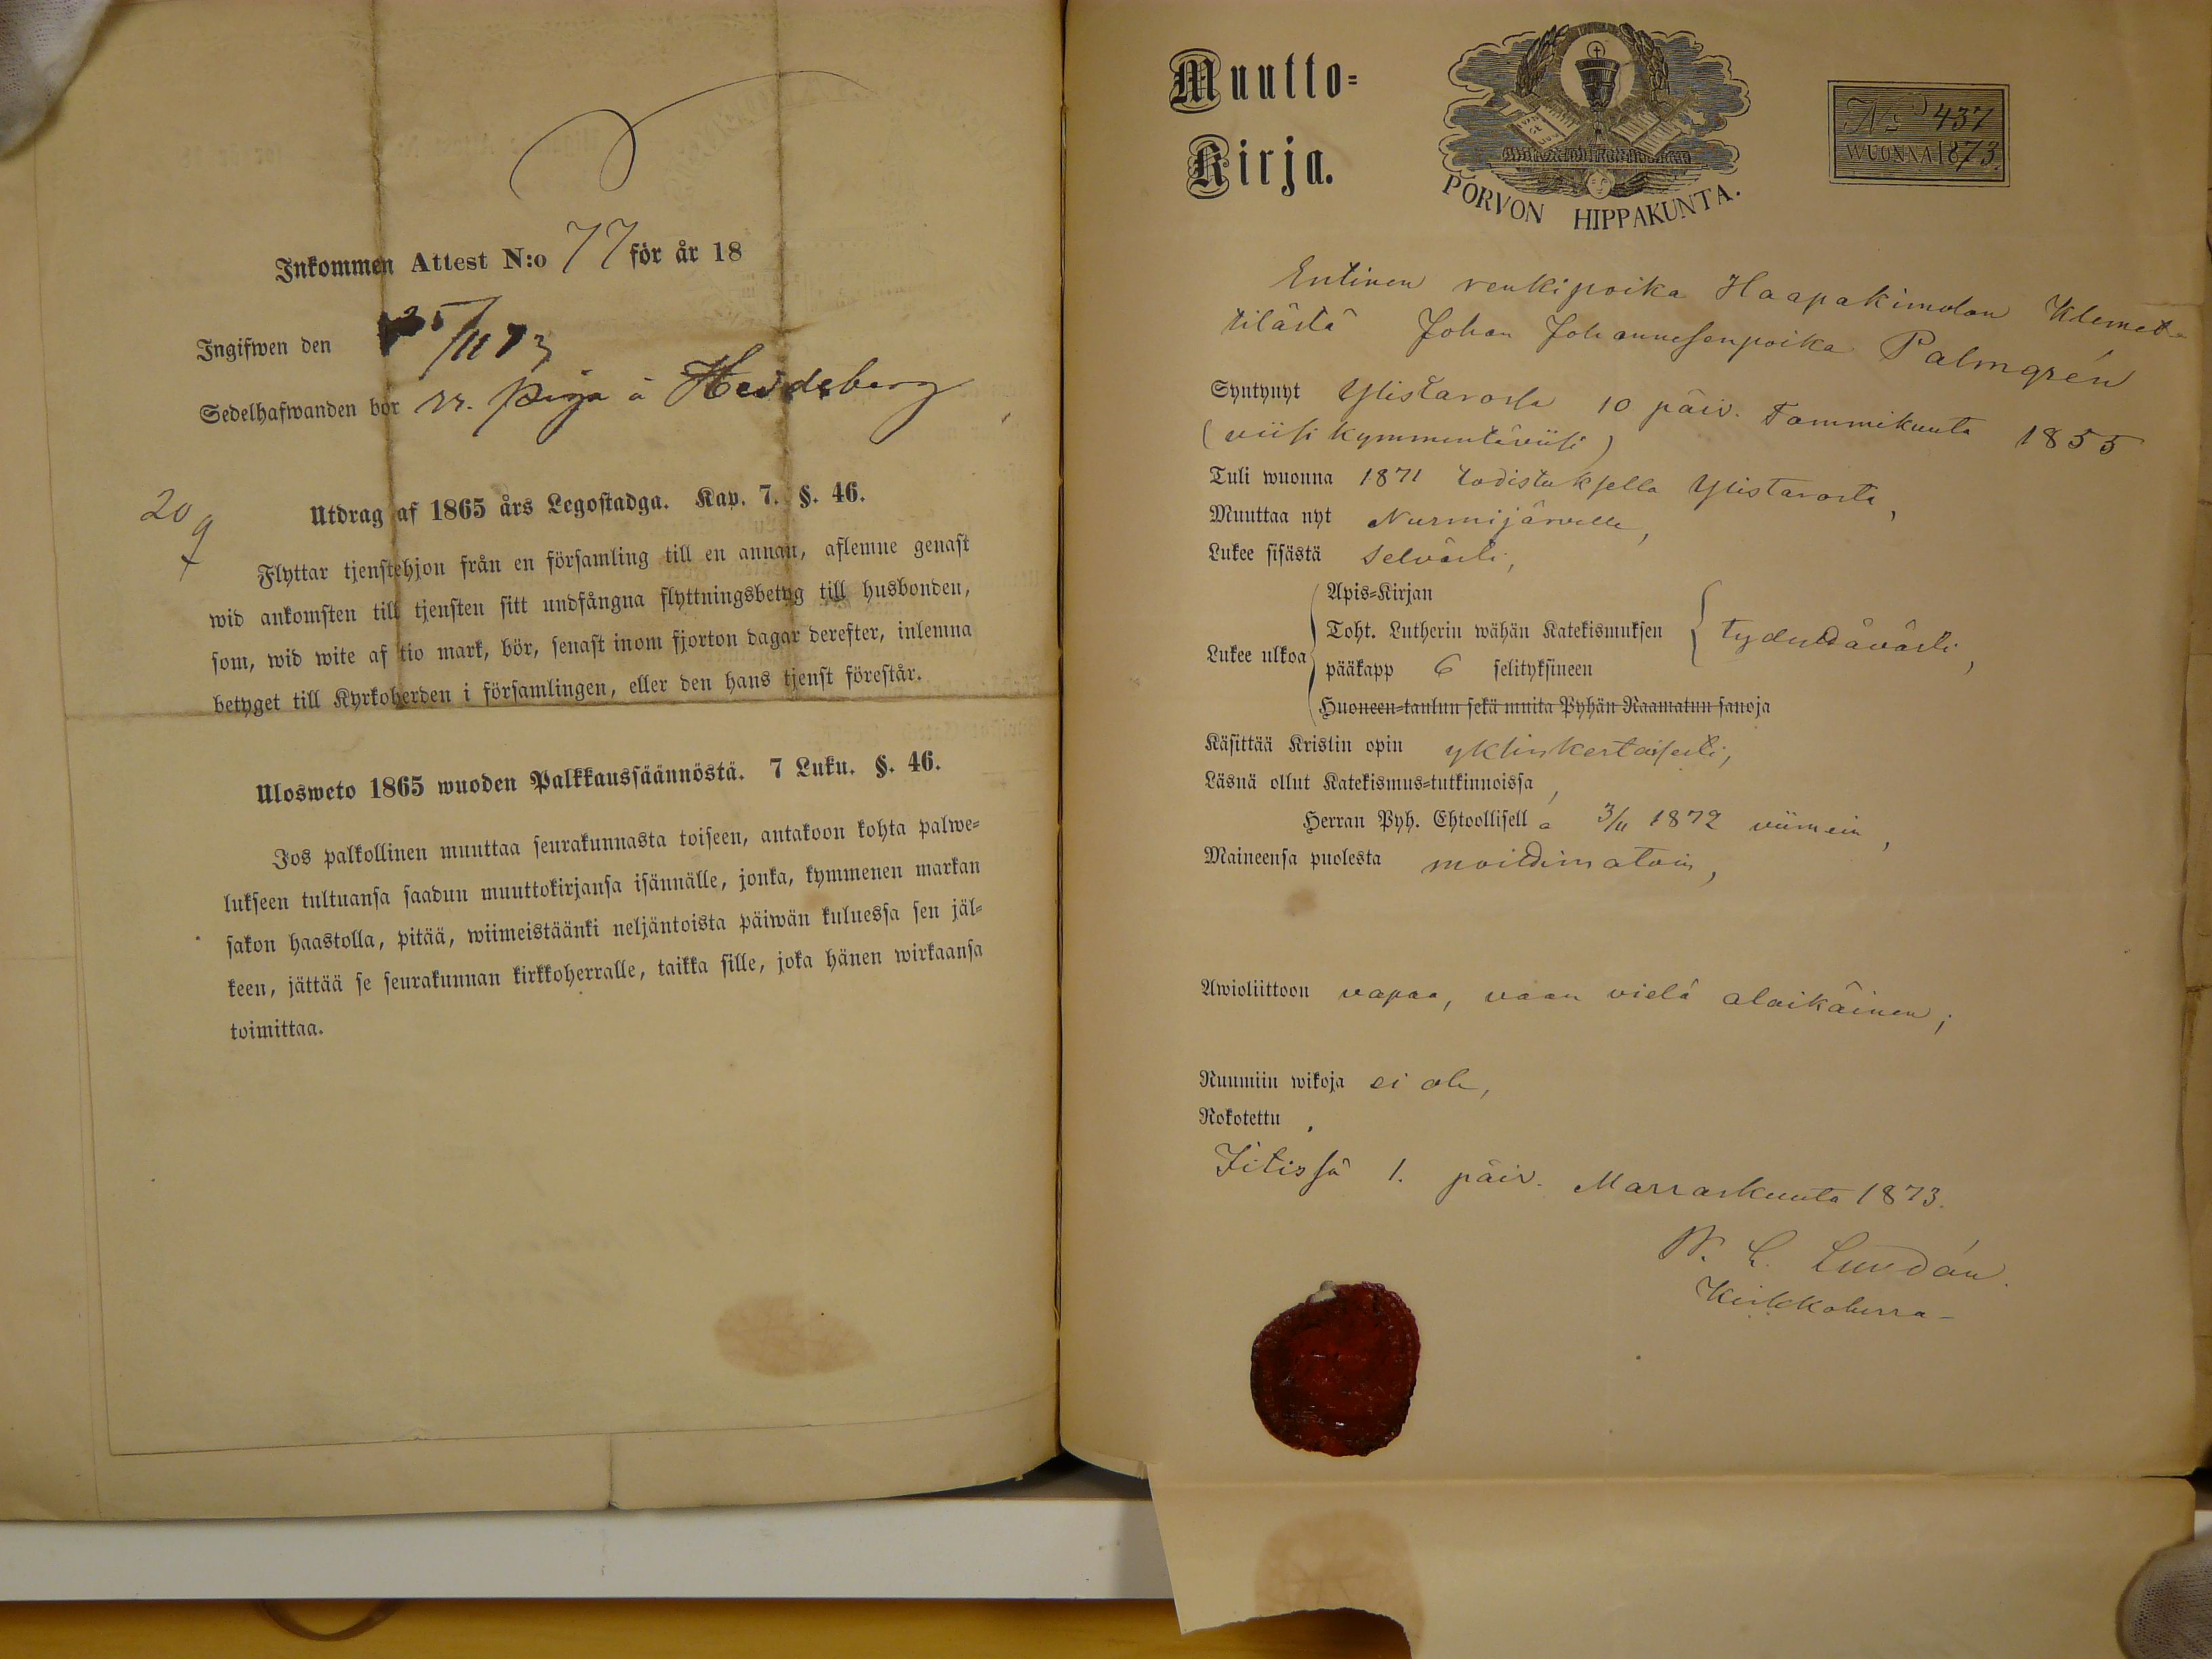 Inkommen Attest N:o 77 för år 18
Ingifwen den 25/11 73
Sedelhafwanden bor rr. piga å Heidelberg
20
Utdrag af 1865 års Legostadga. Kap. 7. §. 46.
Flyttar tjenstehjon från en församling till en annan, aflemne genast
wid ankomsten till tjensten sitt undfångna flyttningsbetyg till husbonden,
som, wid wite af tio mark, bör, senast inom fjorton dagar derefter, inlemna
betyget till Kyrkoherden i församlingen, eller den hans tjenst förestår.
Ulosweto 1865 wuoden Palkkaussäännöstä. 7 Luku. §. 46.
Jos palkollinen muuttaa seurakunnasta toiseen, antakoon kohta palwe=
lukseen tultuansa saadun muuttokirjansa isännälle, jonka, kymmenen markan
sakon haastolla, pitää, wiimeistäänki neljäntoista päiwän kuluessa sen jäl=
keen, jättää se seurakunnan kirkkoherralle, taikka sille, joka hänen wirkaansa
toimittaa.
Muutto=
Kirja.
PORVON HIPPAKUNTA.
No 437
WUONNA 1873.
Entinen renkipoika Haapakimolan Klemet
tilästä Johan Johannesenpoika Palmgrén
Syntynyt Ylistarossa 10 päiv. Tammikuuta 1855
(viisi kymmentäviisi)
Tuli wuonna 1871 todistuksella Ylistarosta,
Muuttaa nyt Nurmijärvelle,
Lukee sisästä selvästi,
Lukee ulkoa
Apis=Kirjan
Toht. Lutherin wähän Katekismuksen
pääkapp 6 selityksineen
tydyttävästi,
Huoneen=taulun sekä muita Pyhän Raamatun sanoja
Käsittää Kristin opin yksinkertaisesti,
Läsnä ollut Katekismus=tutkinnoissa,
Herran Pyh. Ehtoollisella 3/11 1872 viimein,
Maineensa puolesta moittimatoin,
Awioliittoon vapaa, vaan vielä alaikäinen;
Ruumiin wikoja ei ole,
Rokotettu.
Iitissä 1. päiv. Marraskuuta 1873.
Lundán.
Kirkkoherra